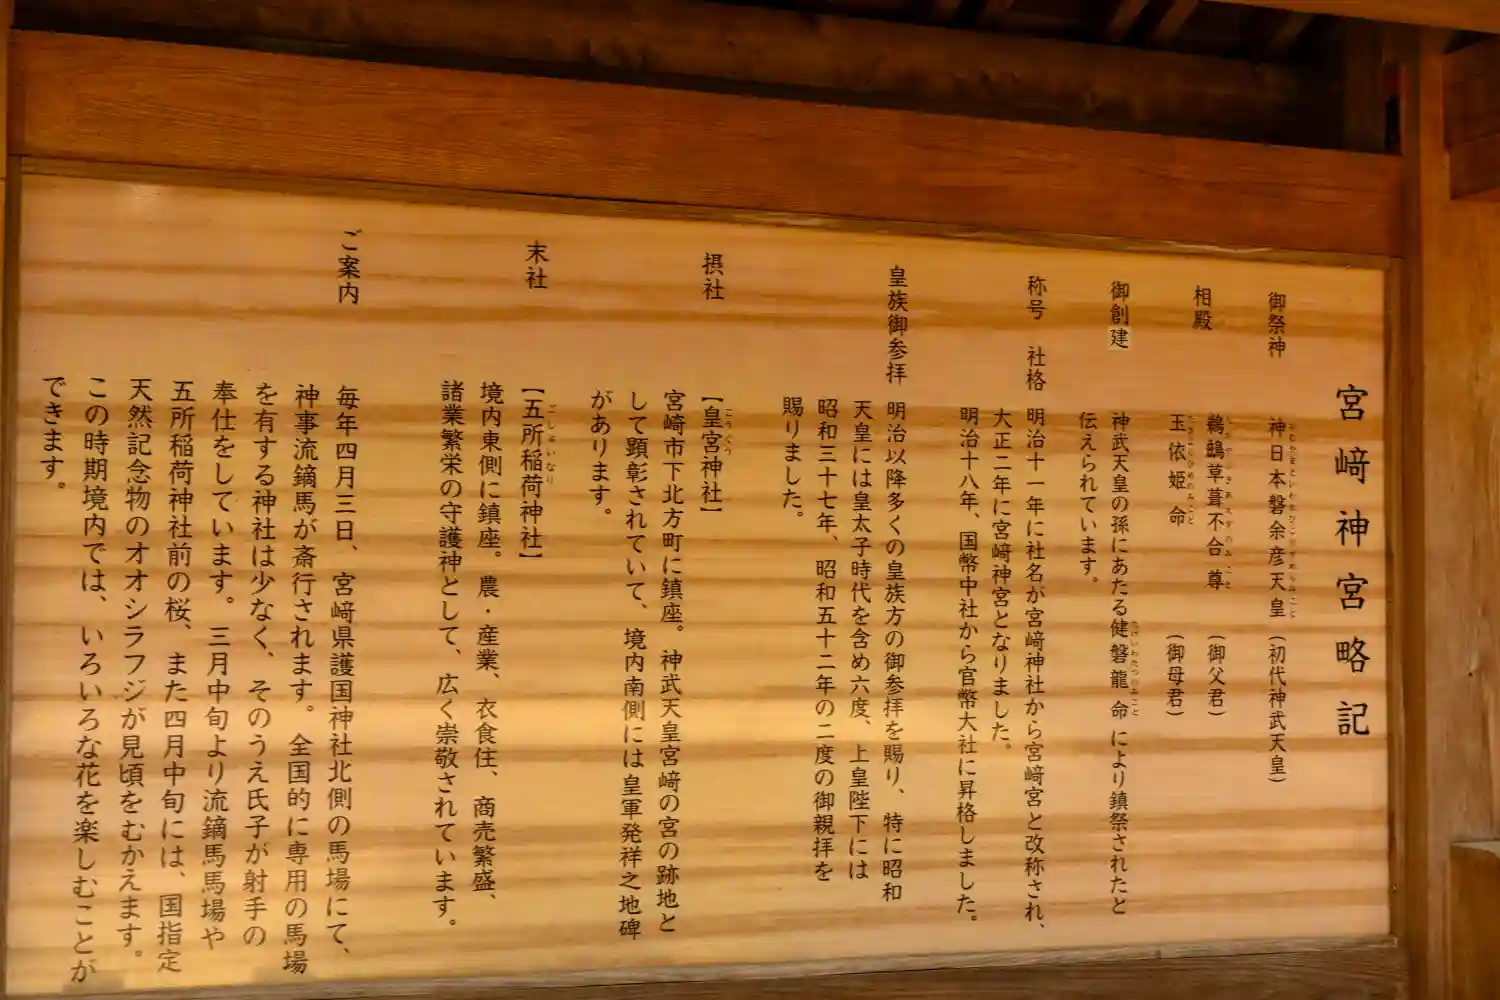 宮﨑神宮略記
御祭神 神日本磐余彦天皇（初代神武天皇）
相殿 鵜鶿草葺不合尊（御父君）
玉依姫命（御母君）
御創建 神武天皇の孫にあたる健磐龍命により鎮祭されたと
伝えられています。
称号 社格 明治十一年に社名が宮﨑神社から宮﨑宮と改称され、
大正二年に宮﨑神宮となりました。
明治十八年、国幣中社から官幣大社に昇格しました。
皇族御参拝 明治以降多くの皇族方の御参拝を賜り、特に昭和
天皇には皇太子時代を含め六度、上皇陛下には
昭和三十七年、昭和五十二年の二度の御親拝を
賜りました。
摂社 【皇宮神社】
宮崎市下北方町に鎮座。神武天皇宮﨑の宮の跡地と
して顕彰されていて、境内南側には皇軍発祥之地碑
があります。
末社 【五所稲荷神社】
境内東側に鎮座。農・産業、衣食住、商売繁盛、
諸業繁栄の守護神として、広く崇敬されています。
ご案内 毎年四月三日、宮﨑県護国神社北側の馬場にて、
神事流鏑馬が斎行されます。全国的に専用の馬場
を有する神社は少なく、そのうえ氏子が射手の
奉仕をしています。三月中旬より流鏑馬馬場や
五所稲荷神社前の桜、また四月中旬には、国指定
天然記念物のオオシラフジが見頃をむかえます。
この時期境内では、いろいろな花を楽しむことが
できます。